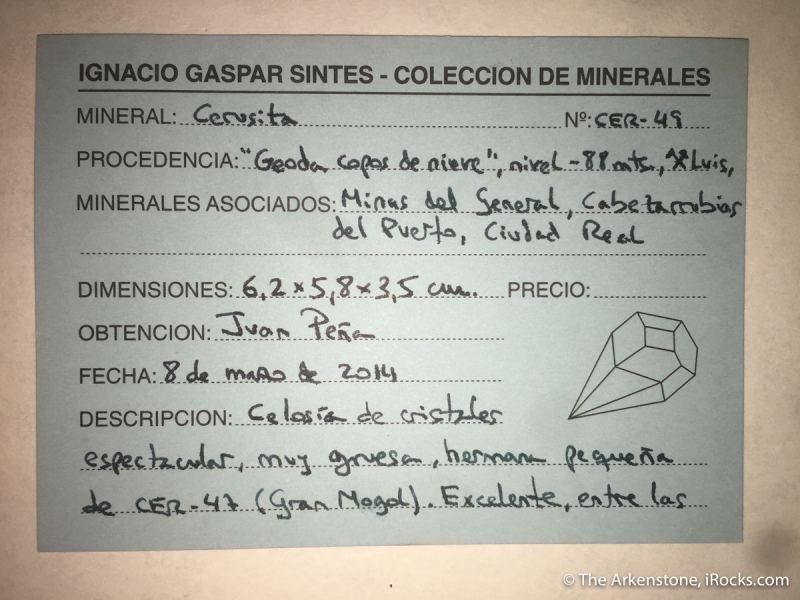 IGNACIO GASPAR SINTES - COLECCION DE MINERALES
MINERAL: Cerusita Nº: CER-49
PROCEDENCIA: "Geoda copos de nieve", nivel -88 mts, Luis,
MINERALES ASOCIADOS: Minas del General, Cabezarrubias
del Puerto, Ciudad Real
DIMENSIONES: 6,2 x 5,8 x 3,5 cm. PRECIO:
OBTENCION: Juan Peña
FECHA: 8 de marzo de 2014
DESCRIPCION: Celosía de cristales
espectacular, muy gruesa, hermana pequeña
de CER-47 (Gran Mogol). Excelente, entre las
© The Arkenstone, iRocks.com